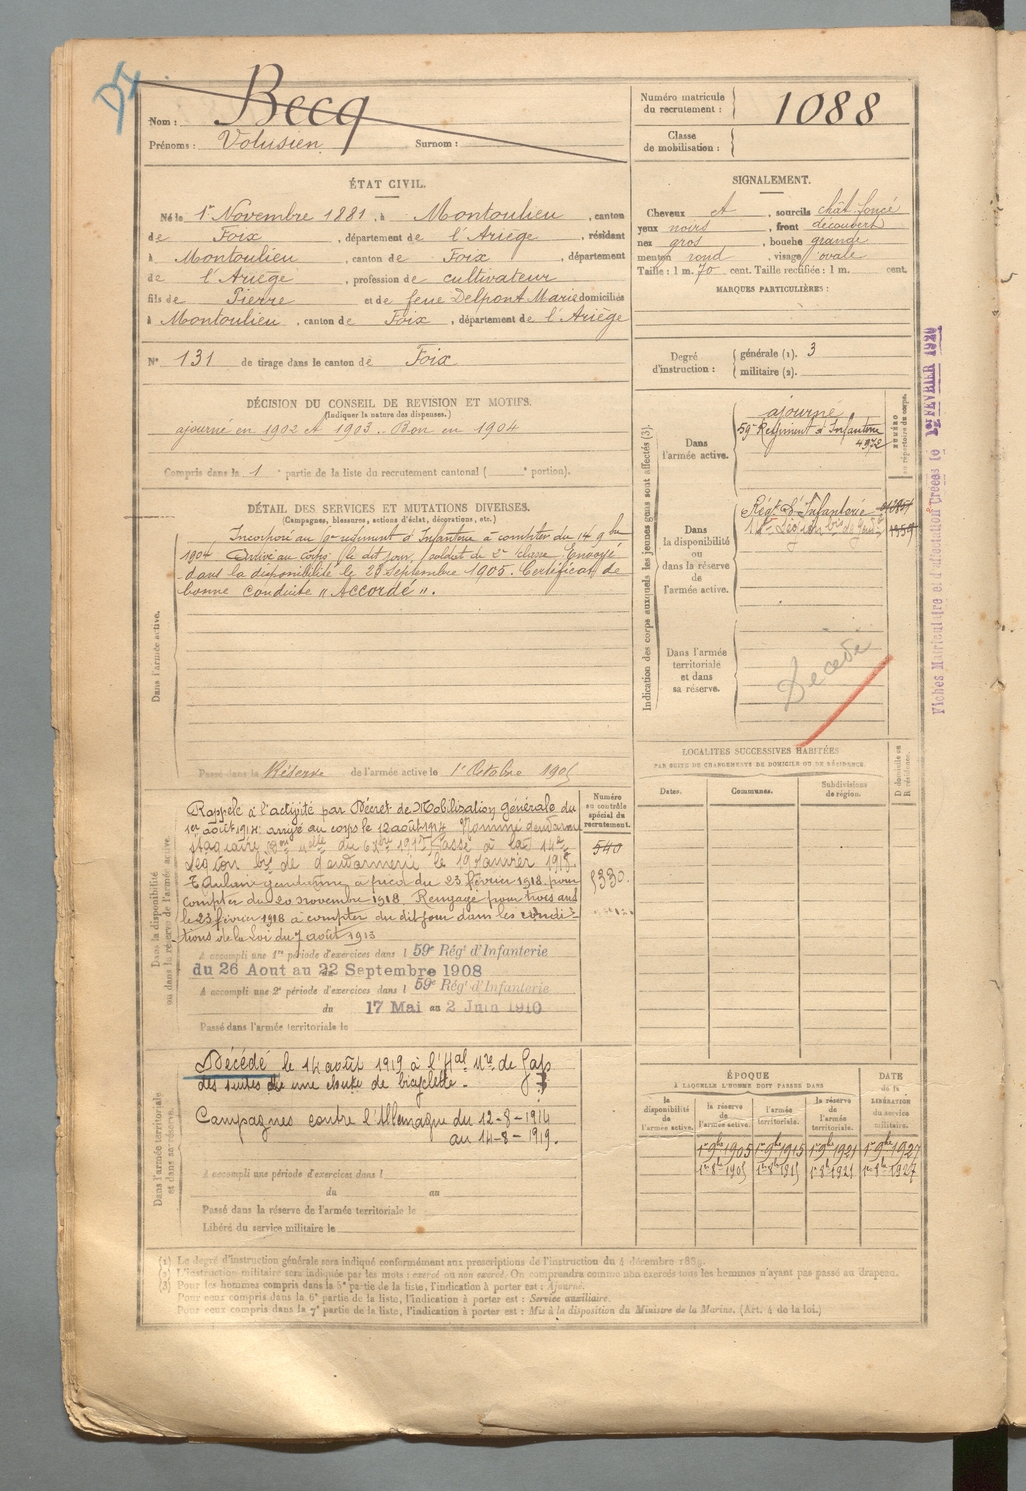 Nom : Becq
Prénoms : Volusien Surnom :
Numéro matricule du recrutement : 1088
Classe de mobilisation :
ÉTAT CIVIL.
Né le 1er Novembre 1881, à Montoulieu, canton
de Foix, département de l'Ariège, résidant
à Montoulieu, canton de Foix, département
de l'Ariège, profession de cultivateur
fils de Pierre et de feue Delpont Marie domiciliés
à Montoulieu, canton de Foix, département de l'Ariège
N° 131 de tirage dans le canton de Foix
SIGNALEMENT.
Cheveux et, sourcils chât. foncé
yeux noirs, front découvert
nez gros, bouche grande
menton rond, visage ovale
Taille : 1 m. 70 cent. Taille rectifiée : 1 m. cent.
MARQUES PARTICULIÈRES :
Degré d'instruction : générale (1). 3
militaire (2).
DÉCISION DU CONSEIL DE REVISION ET MOTIFS.
(Indiquer la nature des dispenses.)
ajourné en 1902 et 1903. Bon en 1904
Compris dans la 1 partie de la liste du recrutement cantonal ( portion).
DÉTAIL DES SERVICES ET MUTATIONS DIVERSES.
(Campagnes, blessures, actions d'éclat, décorations, etc.)
Dans l'armée active.
Incorporé au régiment d'Infanterie à compter du 14 9bre
1904. Arrivé au corps le dit jour, soldat de 2e classe. Envoyé
dans la disponibilité le 23 Septembre 1905. Certificat de
bonne conduite "Accordé".
Passé dans la Réserve de l'armée active le 1er Octobre 1905
Indication des corps auxquels les jeunes gens sont affectés (3).
NUMÉRO au répertoire du corps.
Dans l'armée active.
ajourné
59e Régiment d'Infanterie
4972
Dans la disponibilité ou dans la réserve de l'armée active.
Régt d'Infanterie
Légion bis de Gend
Dans l'armée territoriale et dans sa réserve.
Décédé
Fiches Matriculaire et d'affectation Créées le FEVRIER 1920
LOCALITÉS SUCCESSIVES HABITÉES
PAR SUITE DE CHANGEMENTS DE DOMICILE OU DE RÉSIDENCE.
Dates. Communes. Subdivisions de région. D domicile ou R résidence.
Dans la disponibilité ou dans la réserve de l'armée active.
Numéro au contrôle spécial du recrutement.
540
Rappelé à l'activité par Décret de Mobilisation générale du
1er août 1914. arrivé au corps le 12 août 1914. Nommé Gendarme
stagiaire
Passé à la 14e
Légion bis de Gendarmerie le 19 Janvier 1918.
Titulaire gendarme à pied du 23 février 1918 pour
compter du 20 novembre 1918. Rengagé pour trois ans
le 23 février 1918 à compter du dit jour dans les condi-
tions de la Loi du 7 août 1913
A accompli une 1re période d'exercices dans l 59e Régt d'Infanterie
du 26 Aout au 22 Septembre 1908
A accompli une 2e période d'exercices dans l 59e Régt d'Infanterie
du 17 Mai au 2 Juin 1910
Passé dans l'armée territoriale le
Dans l'armée territoriale et dans sa réserve.
Décédé le 14 août 1919 à l'Hal Mre de Gap
des suites de une chute de bicyclette.
Campagnes contre l'Allemagne du 12-8-1914
au 14-8-1919.
A accompli une période d'exercices dans l
du au
Passé dans la réserve de l'armée territoriale le
Libéré du service militaire le
ÉPOQUE
À LAQUELLE L'HOMME DOIT PASSER DANS
DATE de la LIBÉRATION du service militaire.
la disponibilité de l'armée active. la réserve de l'armée active. l'armée territoriale. la réserve de l'armée territoriale.
1er 9bre 1905 1er 9bre 1915 1er 9bre 1921 1er 9bre 1927
(1) Le degré d'instruction générale sera indiqué conformément aux prescriptions de l'instruction du 4 décembre 1889.
(2) L'instruction militaire sera indiquée par les mots : exercé ou non exercé. On comprendra comme non exercés tous les hommes n'ayant pas passé au drapeau.
(3) Pour les hommes compris dans la 5e partie de la liste, l'indication à porter est : Ajourné.
Pour ceux compris dans la 6e partie de la liste, l'indication à porter est : Service auxiliaire.
Pour ceux compris dans la 7e partie de la liste, l'indication à porter est : Mis à la disposition du Ministre de la Marine. (Art. 4 de la loi.)